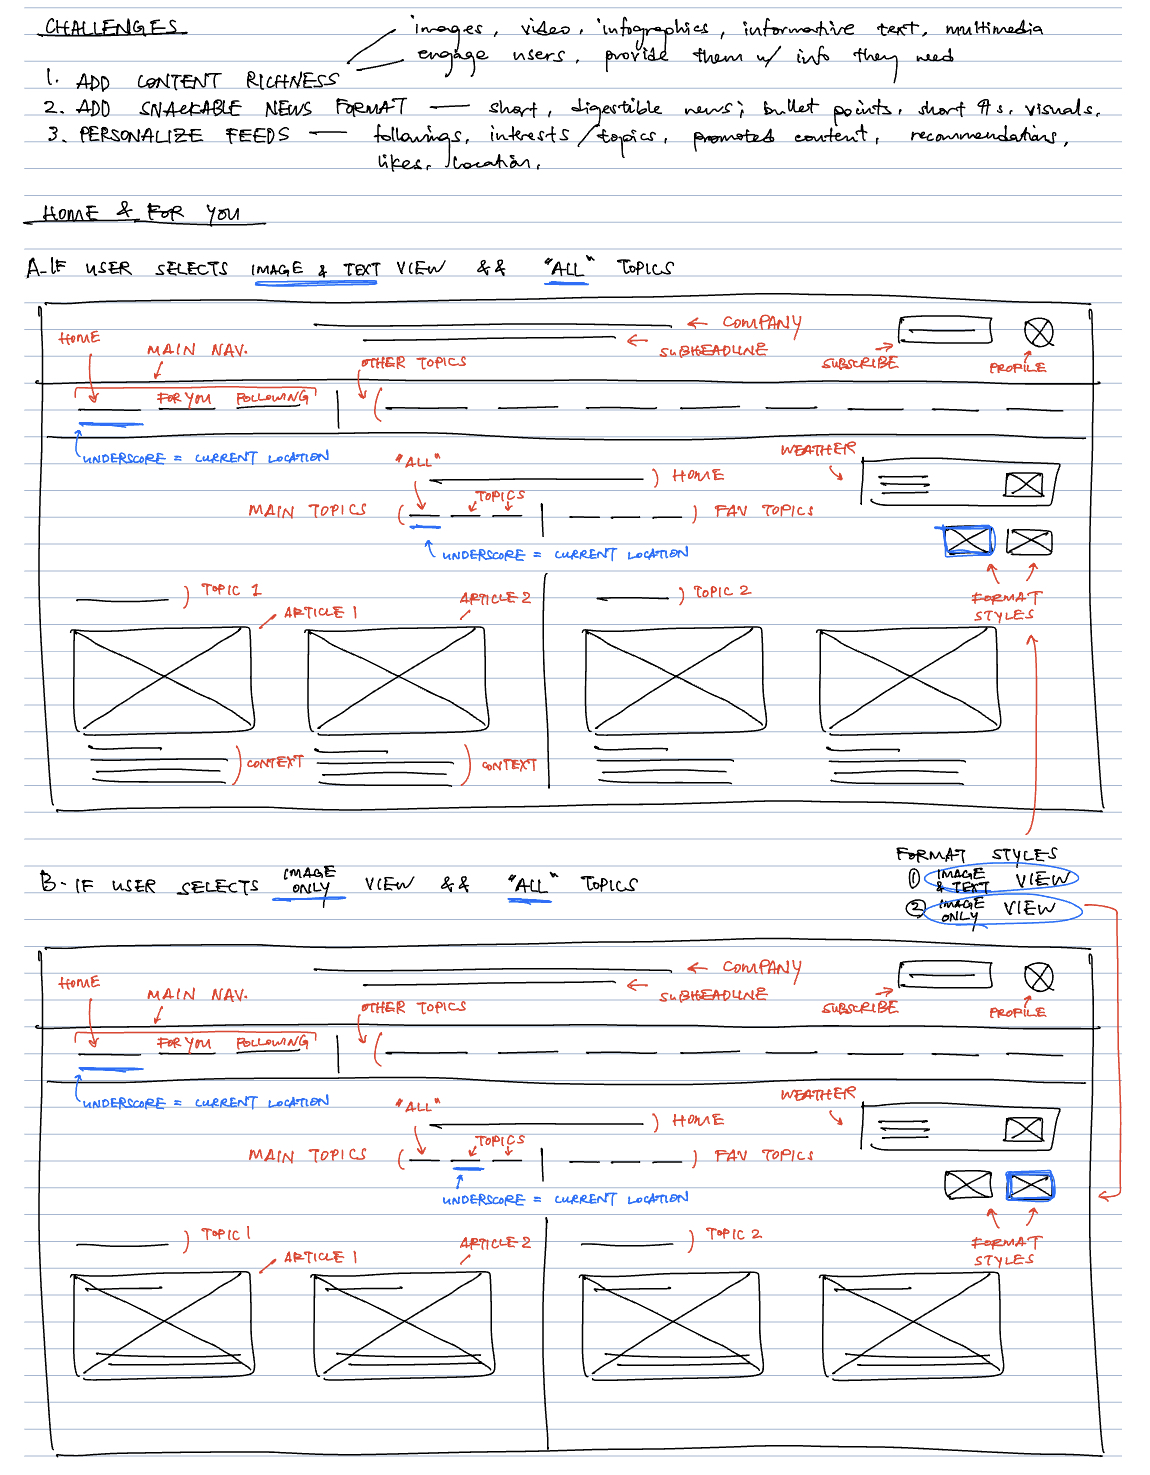 CHALLENGES
images, video, infographics, informative text, multimedia
engage users, provide them w/ info they need
1. ADD CONTENT RICHNESS
2. ADD SNACKABLE NEWS FORMAT — short, digestible news; bullet points, short ¶s, visuals.
3. PERSONALIZE FEEDS — followings, interests / topics, promoted content, recommendations,
likes, location.
HOME & FOR YOU
A- IF USER SELECTS IMAGE & TEXT VIEW && "ALL" TOPICS
← COMPANY
HOME
MAIN NAV.
← SUBHEADLINE
OTHER TOPICS
SUBSCRIBE
PROFILE
FOR YOU FOLLOWING
UNDERSCORE = CURRENT LOCATION
WEATHER
"ALL"
) HOME
TOPICS
MAIN TOPICS ( ) FAV TOPICS
UNDERSCORE = CURRENT LOCATION
) TOPIC 1
) TOPIC 2
FORMAT
STYLES
ARTICLE 1
ARTICLE 2
) CONTEXT
) CONTEXT
FORMAT STYLES
① IMAGE & TEXT VIEW
② IMAGE ONLY VIEW
B- IF USER SELECTS IMAGE ONLY VIEW && "ALL" TOPICS
← COMPANY
HOME
MAIN NAV.
← SUBHEADLINE
OTHER TOPICS
SUBSCRIBE
PROFILE
FOR YOU FOLLOWING
UNDERSCORE = CURRENT LOCATION
WEATHER
"ALL"
) HOME
TOPICS
MAIN TOPICS ( ) FAV TOPICS
UNDERSCORE = CURRENT LOCATION
) TOPIC 1
) TOPIC 2
FORMAT
STYLES
ARTICLE 1
ARTICLE 2